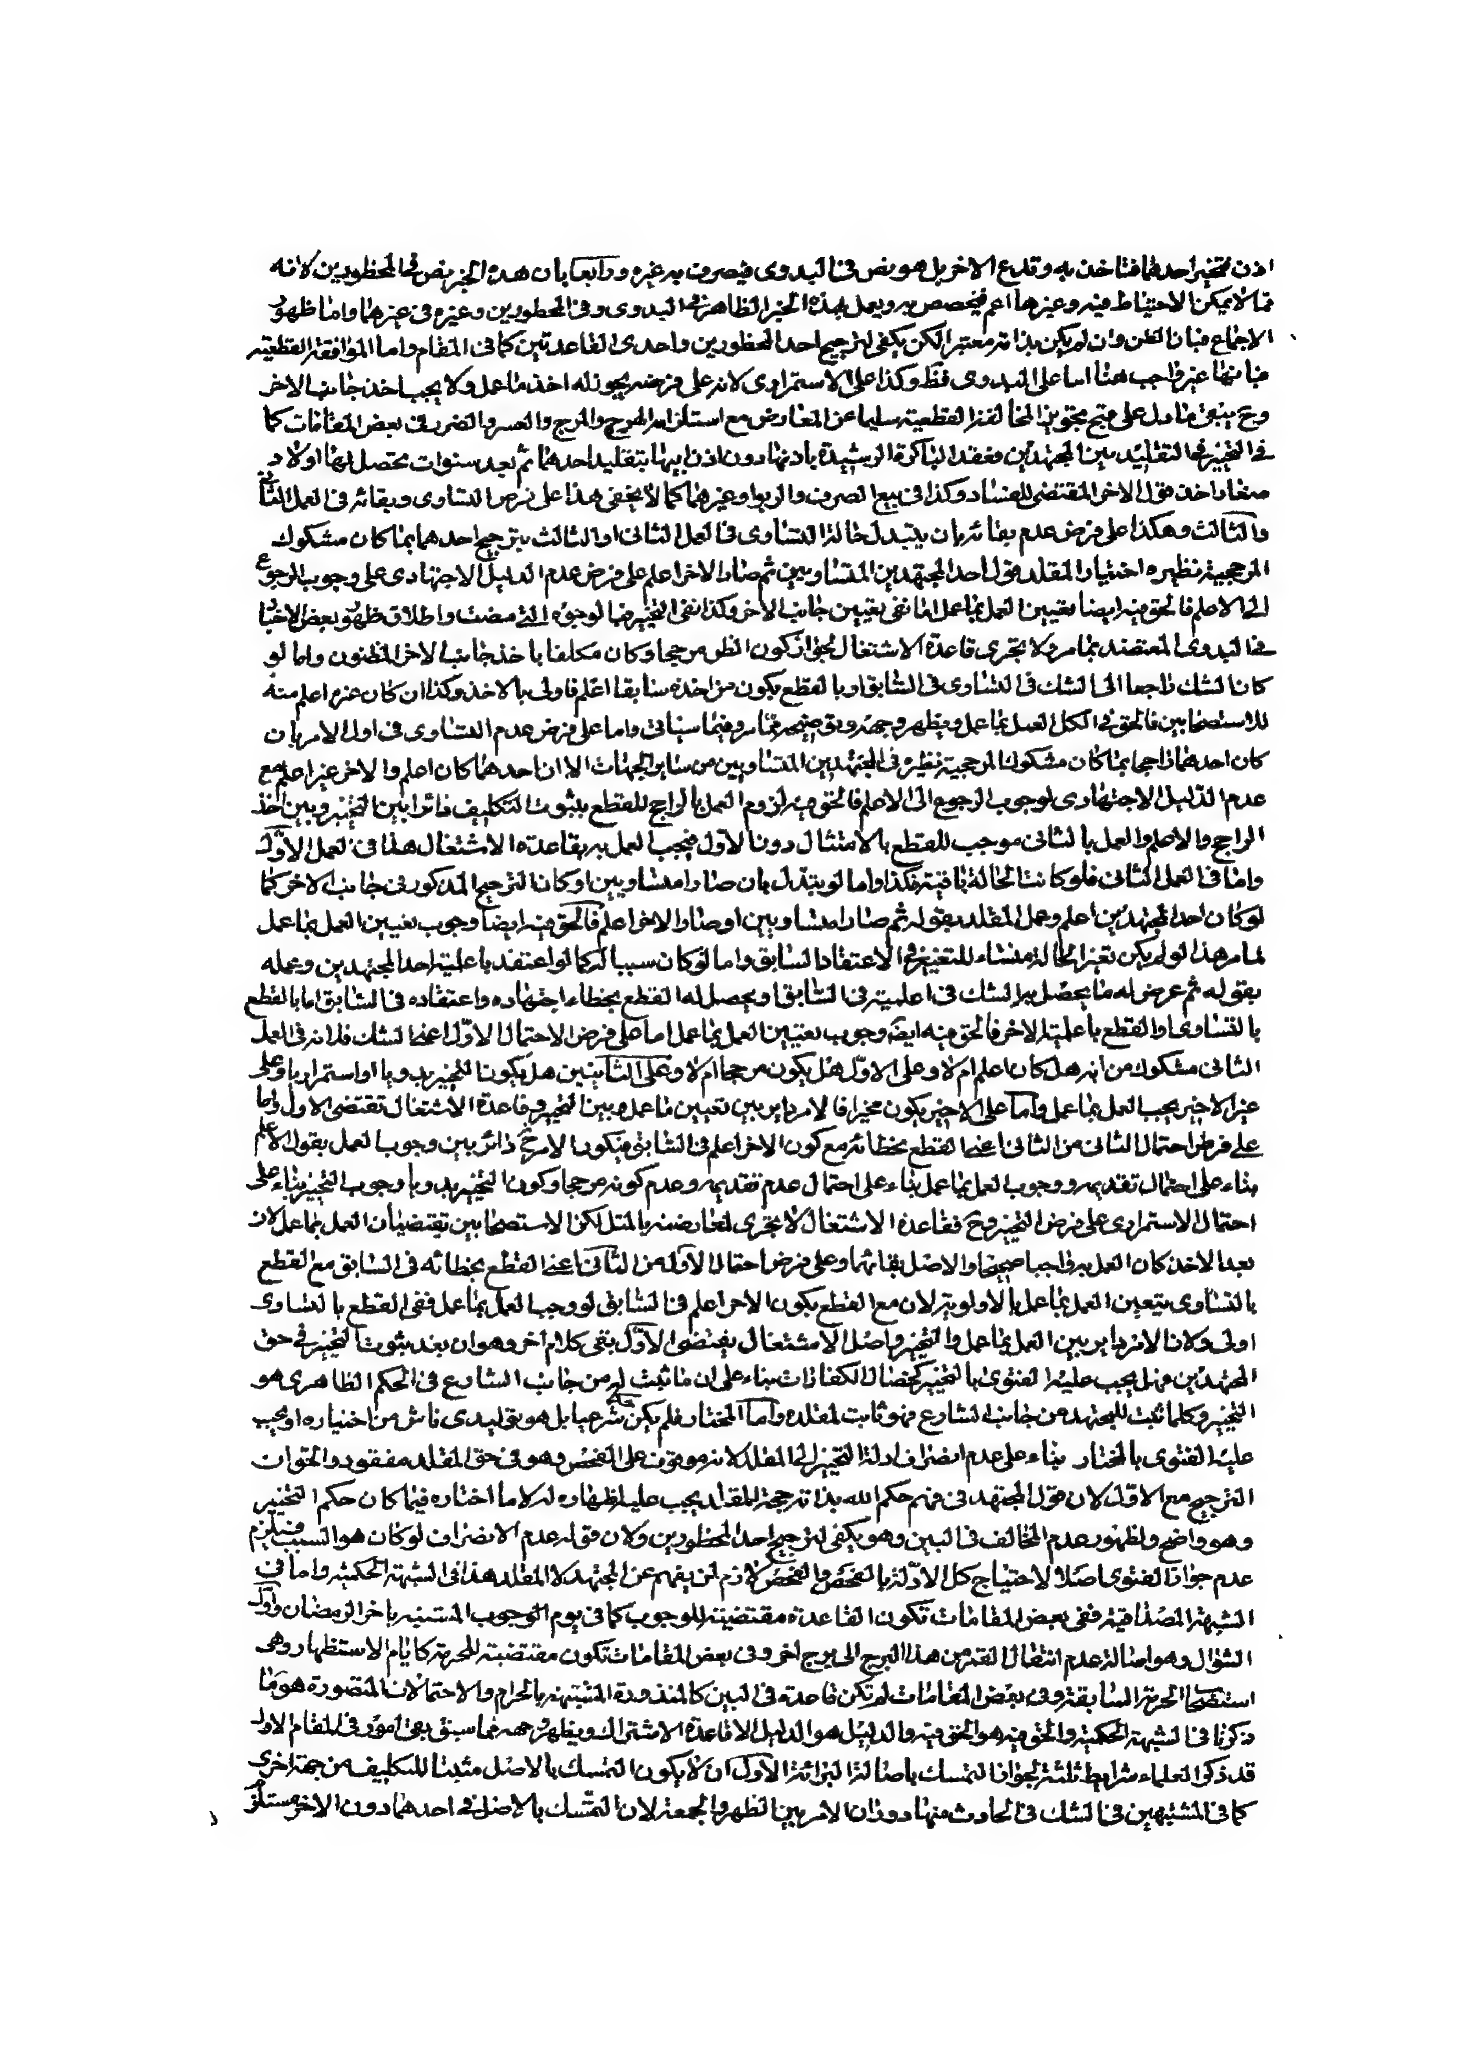 اذن فتخير احدهما فتاخذ به وتدع الاخر بل هو نص فى البدوى فيصرف به غيره ورابعا بان هذه الخبر نص فى المحظورين لانه
مما لا يمكن الاحتياط فيه وغيرها اعم فيخصص به ويعمل بهذا الخبر الظاهر فى البدوى وفى المحظورين وغيره فى غيرهما واما ظهور
الاجماع فبان الظن وان لم يكن بذاته معتبرا لكن يكفى لترجيح احد المحظورين واحدى القاعدتين كما فى المقام واما الموافقة القطعية
فبانها غير واجب هنا اما على البدوى فظ وكذا على الاستمرارى لانه على فرضه يجوز له اخذ ما عمل ولا يجب اخذ جانب الاخر
وح يبقى ما دل على قبح تجويز المخالفة القطعية سليما عن المعارض مع استلزامه الهرج والمرج والعسر والضرر فى بعض المقامات كما
فى التخيير فى التقليد بين المجتهدين فعقد الباكرة الرشيدة باذنها دون اذن ابيها بتقليد احدهما ثم بعد سنوات يحصل لها اولاد
صغار اخذ بقول الاخر المقتضى للفساد وكذا فى بيع الصرف والربوا وغيرهما كما لا يخفى هذا على فرض التساوى وبقائه فى العمل الثانى
والثالث وهكذا على فرض عدم بقائه بان يتبدل حالة التساوى فى العمل الثانى او الثالث بترجيح احدهما بما كان مشكوك
المرجحية نظيره اختيار المقلد قول احد المجتهدين المتساويين ثم صار الاخر اعلم على فرض عدم الدليل الاجتهادى على وجوب الرجوع
الى الاعلم فالحق فيه ايضا تعيين العمل بما عمل اما نفى تعيين جانب الاخر وكذا نفى التخيير فبالوجوه التى مضت واطلاق ظهور بعض الاخبار
فى البدوى المعتضد بما مر ولا يجرى قاعدة الاشتغال لجواز كون الظن مرجحا وكان مكلفا باخذ جانب الاخر المظنون واما لو
كان الشك راجعا الى الشك فى التساوى فى السابق او بالقطع بكون من اخذه سابقا اعلم فاولى بالاخذ وكذا ان كان غيره اعلم منه
للاستصحابين فالحق فى الكل العمل بما عمل ويظهر وجهه وتوضيحه مما مر وفيما سياتى واما على فرض عدم التساوى فى اول الامر بان
كان احدهما راجحا بما كان مشكوك المرجحية نظيره فى المجتهدين المتساويين من ساير الجهات الا ان احدهما كان اعلم والاخر غير اعلم مع
عدم الدليل الاجتهادى لوجوب الرجوع الى الاعلم فالحق فيه لزوم العمل بالراجح للقطع بثبوت التكليف دائرا بين التخيير وبين اخذ
الراجح والاعلم والعمل بالثانى موجب للقطع بالامتثال دون الاول فيجب العمل به بقاعدة الاشتغال هذا فى العمل الاول
واما فى العمل الثانى فلو كانت الحالة باقية فكذا واما لو يتبدل بان صارا متساويين او كان الترجيح المذكور فى جانب الاخر كما
لو كان احد المجتهدين اعلم وعمل المقلد بقوله ثم صارا متساويين او صار الاخر اعلم فالحق فيه ايضا وجوب تعيين العمل بما عمل
لما مر هذا لو لم يكن تغير الحالة منشاء للتغير فى الاعتقاد السابق واما لو كان سببا له كما لو اعتقد باعلمية احد المجتهدين وعمله
بقوله ثم عرض له ما يحصل به الشك فى اعلميته فى السابق او يحصل له القطع بخطاء اجتهاده واعتقاده فى السابق اما بالقطع
بالتساوى او القطع باعلمية الاخر فالحق فيه ايضا وجوب تعيين العمل بما عمل اما على فرض الاحتمال الاول اعنى الشك فلانه فى العمل
الثانى مشكوك من انه هل كان اعلم ام لا وعلى الاول هل يكون مرجحا ام لا وعلى الثانيين هل يكون التخيير بدويا او استمراريا وعلى
غير الاخير يجب العمل بما عمل واما على الاخير يكون مخيرا فالامر داير بين تعيين ما عمل وبين التخيير وقاعدة الاشتغال تقتضى الاول واما
على فرض احتمال الثانى من الثانى اعنى القطع بخطائه مع كون الاخر اعلم فى السابق فيكون الامر ح دائر بين وجوب العمل بقول الاعلم
بناء على احتمال تقديمه ووجوب العمل بما عمل بناء على احتمال عدم تقديمه وعدم كونه مرجحا وكون التخيير بدويا ووجوب التخيير بناء على
احتمال الاستمرارى على فرض التخيير وح فقاعدة الاشتغال لا يجرى لمعارضته بالمثل لكن الاستصحابين تقتضيان العمل بما عمل لان
بعد الاخذ كان العمل به واجبا صحيحا والاصل بقائهما وعلى فرض احتمال الاول من الثانى اعنى القطع بخطائه فى السابق مع القطع
بالتساوى يتعين العمل بما عمل بالاولوية لان مع القطع بكون الاخر اعلم فى السابق لو وجب العمل بما عمل ففى القطع بالتساوى
اولى ولان الامر داير بين العمل بما عمل والتخيير واصل الاشتغال يقتضى الاول بقى كلام اخر وهو ان بعد ثبوت التخيير فى حق
المجتهدين فهل يجب عليه الفتوى بالتخيير كخصال الكفارات بناء على ان ما ثبت له من جانب الشارع فى الحكم الظاهرى هو
التخيير وكلما ثبت للمجتهد من جانب الشارع فهو ثابت لمقلده واما المختار فلم يكن حكمه شرعيا بل هو تقليدى ناش من اختياره او يجب
عليه الفتوى بالمختار بناء على عدم انصراف ادلة التخيير الى المقلد لانه موقوف على الفحص وهو فى حق المقلد مفقود والحق ان
الترجيح مع الاول لان قول المجتهد فى فهم حكم الله بذاته حجة للمقلد يجب عليه اظهاره له لا ما اختاره فيما كان حكم التخيير
وهو واضح ولظهور عدم المخالف فى البين وهو يكفى لترجيح احد المحظورين ولان قوله عدم الانصراف لو كان هو السبب فيلزم
عدم جواز الفتوى اصلا لاحتياج كل الادلة بالفحص والفحص لازم لمن يفهم عن المجتهد لا المقلد هذا فى الشبهة الحكمية واما فى
الشبهة المصداقية ففى بعض المقامات تكون القاعدة مقتضية للوجوب كما فى يوم الوجوب المشتبه باخر رمضان واول
الشوال وهو اصالة عدم انتقال القمر من هذا البرج الى برج اخر وفى بعض المقامات تكون مقتضية للحرمة كايام الاستظهار وهى
استصحاب الحرمة السابقة وفى بعض المقامات لم تكن قاعدة فى البين كالمنذورة المشتبه بالحرام والاحتمالات المتصورة هو ما
ذكرنا فى الشبهة الحكمية والحق فيه هو الحق فيه والدليل هو الدليل الا قاعدة الاشتراك ويظهر وجهه مما سبق بقى امور فى المقام الاول
قد ذكر العلماء شرايط ثلثة لجواز التمسك باصالة البرائة الاول ان لا يكون التمسك بالاصل مثبتا للتكليف من جهة اخرى
كما فى المشتبهين فى الشك فى الحادث منهما ودوران الامر بين الظهر والجمعة لان التمسك بالاصل فى احدهما دون الاخر مستلزم